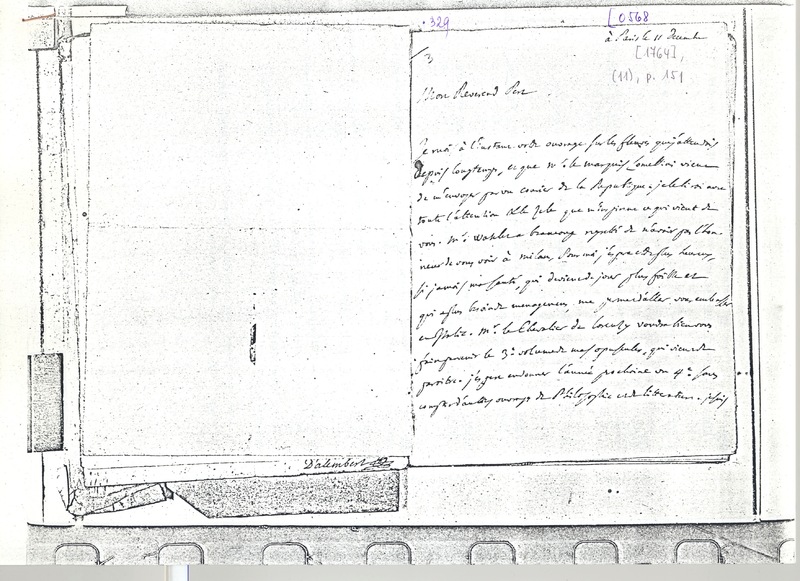 329
[0568
à Paris le 11 Decembre
[1764],
(11), p. 151
3
Mon Reverend Pere
Je reçois à l'instant votre ouvrage sur les fleuves que j'attendois
depuis longtemps, et que Mr. le marquis Lomellini vient
de m'envoyer par un courier de la Republique. je le lirai avec
toute l'attention et le zele que m'inspire ce qui vient de
vous. Mr. Watelet a beaucoup regretté de n'avoir pas l'hon-
neur de vous voir à milan. Pour moi j'espere etre plus heureux,
si jamais ma santé, qui devient de jour plus foible et
qui a plus besoin de menagemens, me permet d'aller vous embrasser
en Italie. Mr. le Chevalier de Lorenzy voudra bien vous
faire parvenir le 3e. volume de mes opuscules, qui vient de
paroitre. j'espere en donner l'année prochaine un 4e. sans
compter d'autres ouvrages de Philosophie et de litterature. je suis
D'alembert